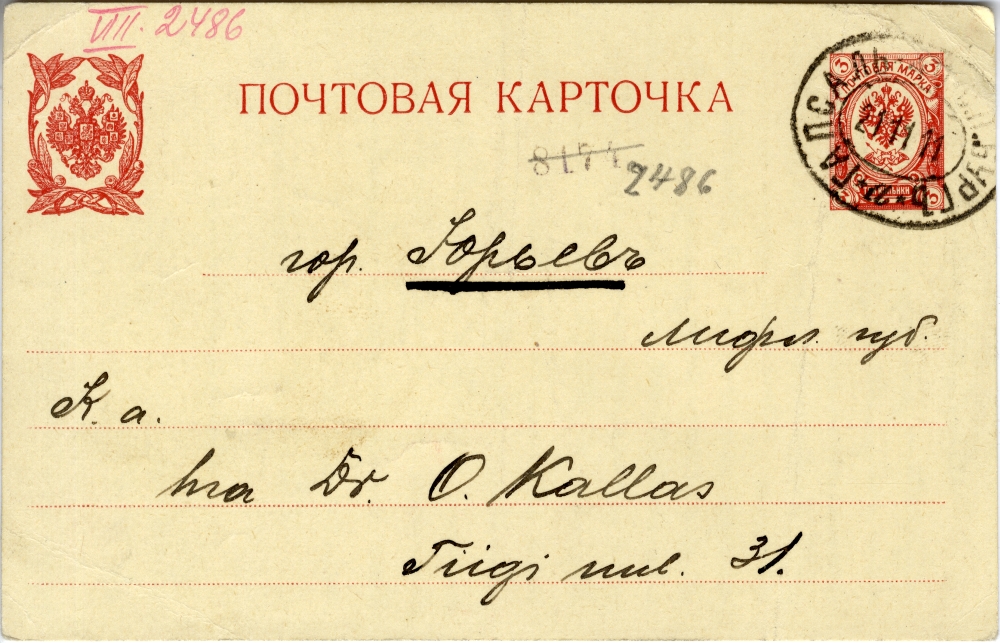 VIII. 2486
ПОЧТОВАЯ КАРТОЧКА
3 ПОЧТОВАЯ МАРКА 3
ГАПСАЛЬ
21 11 11
8174 2486
гор. Юрьевъ
Лифл. губ.
K. a.
hra Dr. O. Kallas
Tiigi uul. 31.